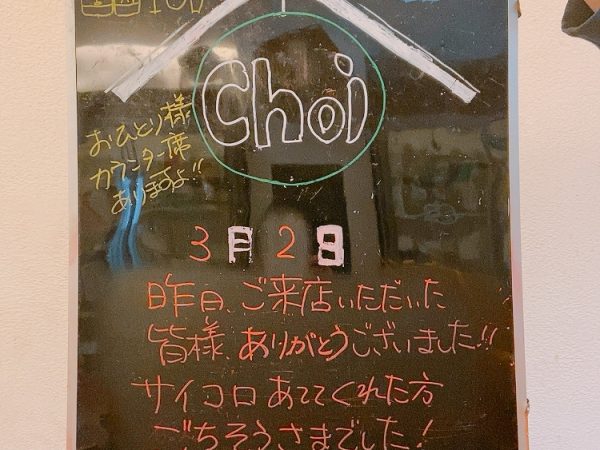 Choi
おひとり様
カウンター席
ありますよ!!
3月2日
昨日、ご来店いただいた
皆様、ありがとうございました!!
サイコロあててくれた方
ごちそうさまでした!